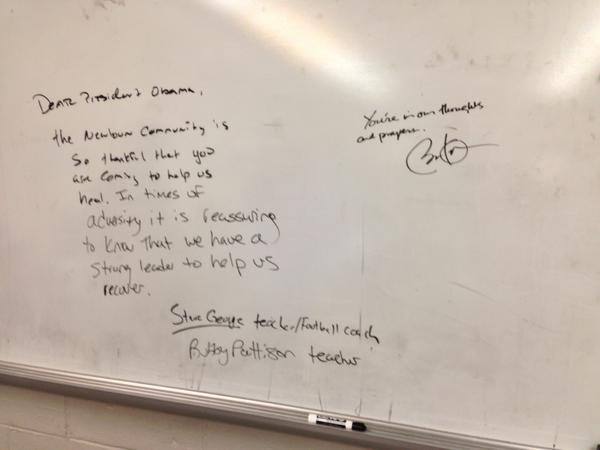 Dear President Obama,
the Newtown Community is
so thankful that you
are coming to help us
heal. In times of
adversity it is reassuring
to know that we have a
strong leader to help us
recover.
Steve George teacher/Football coach
Bobby Pattison teacher
You're in our thoughts
and prayers.